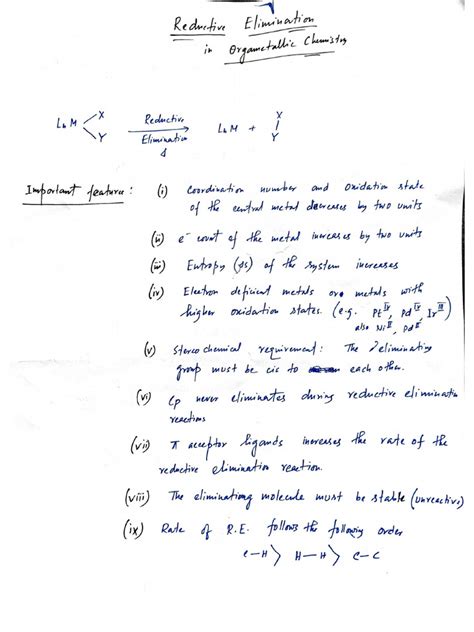 Reductive Elimination
in Orgametallic Chemistry
LnM X Y Reductive Elimination Δ LnM + X Y
Important features: (i) Coordination number and Oxidation state
of the central metal decreases by two units
(ii) e⁻ count of the metal increases by two units
(iii) Entropy (ΔS) of the system increases
(iv) Electron deficient metals or metals with
higher oxidation states. (e.g. Pt^IV, Pd^IV, Ir^III
also Ni^II, Pd^II
(v) Stereochemical requirement: The eliminating
group must be cis to each other.
(vi) Cp never eliminates during reductive elimination
reactions
(vii) π acceptor ligands increases the rate of the
reductive elimination reaction.
(viii) The eliminationg molecule must be stable (unreactive)
(ix) Rate of R.E. follows the following order
C-H > H-H > C-C